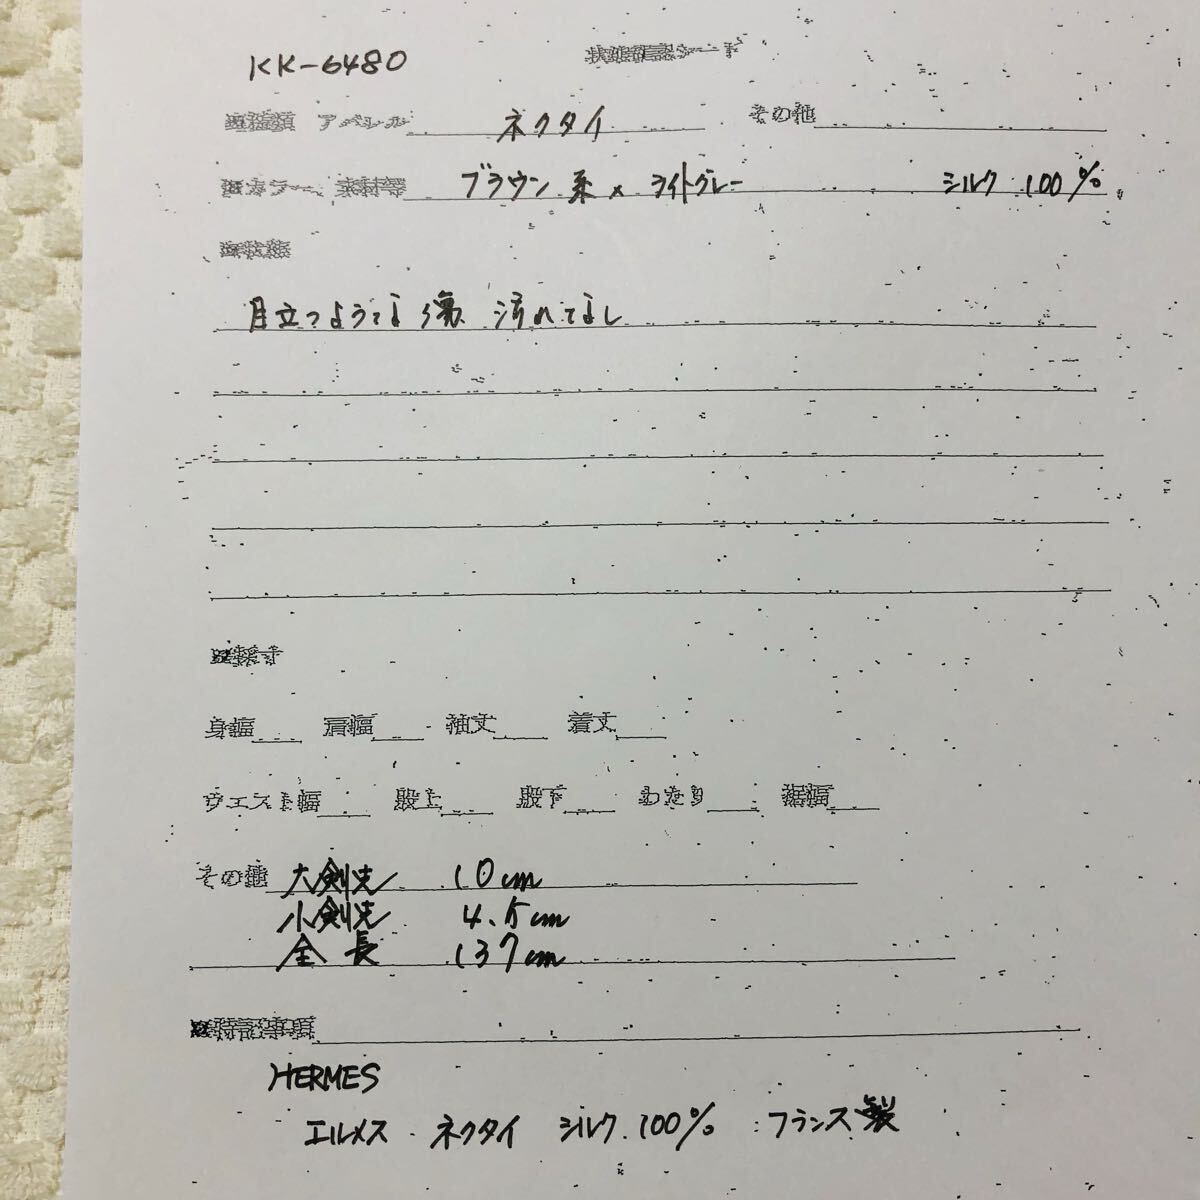 KK-6480 状態確認シート
■種類 アパレル ネクタイ その他
■カラー、素材等 ブラウン系×ライトグレー シルク 100%
■状態
目立つような傷 汚れてなし
■採寸
身幅 肩幅 袖丈 着丈
ウエスト幅 股上 股下 わたり 裾幅
その他 大剣先 10cm
小剣先 4.5cm
全長 137cm
■特記事項
HERMES
エルメス ネクタイ シルク 100% フランス製